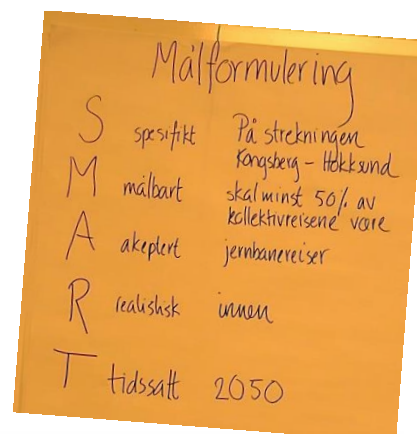 Målformulering
S spesifikt På strekningen
Kongsberg - Hokksund
M målbart skal minst 50% av
kollektivreisene være
A akeptert jernbanereiser
R realistisk innen
T tidssatt 2050